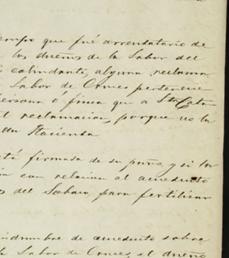 empo que fué arrendatario de
los dueños de la Labor del
colindante, alguna reclama
Labor de Cruces pertenece
persona ó finca que a
l reclamacion, porque no la
su Hacienda
firmada de su puño y si la
con relacion al acueducto
del Sabais, para fertilizar
vidumbre de acueducto sobre
Labor de Cruces, el dueño